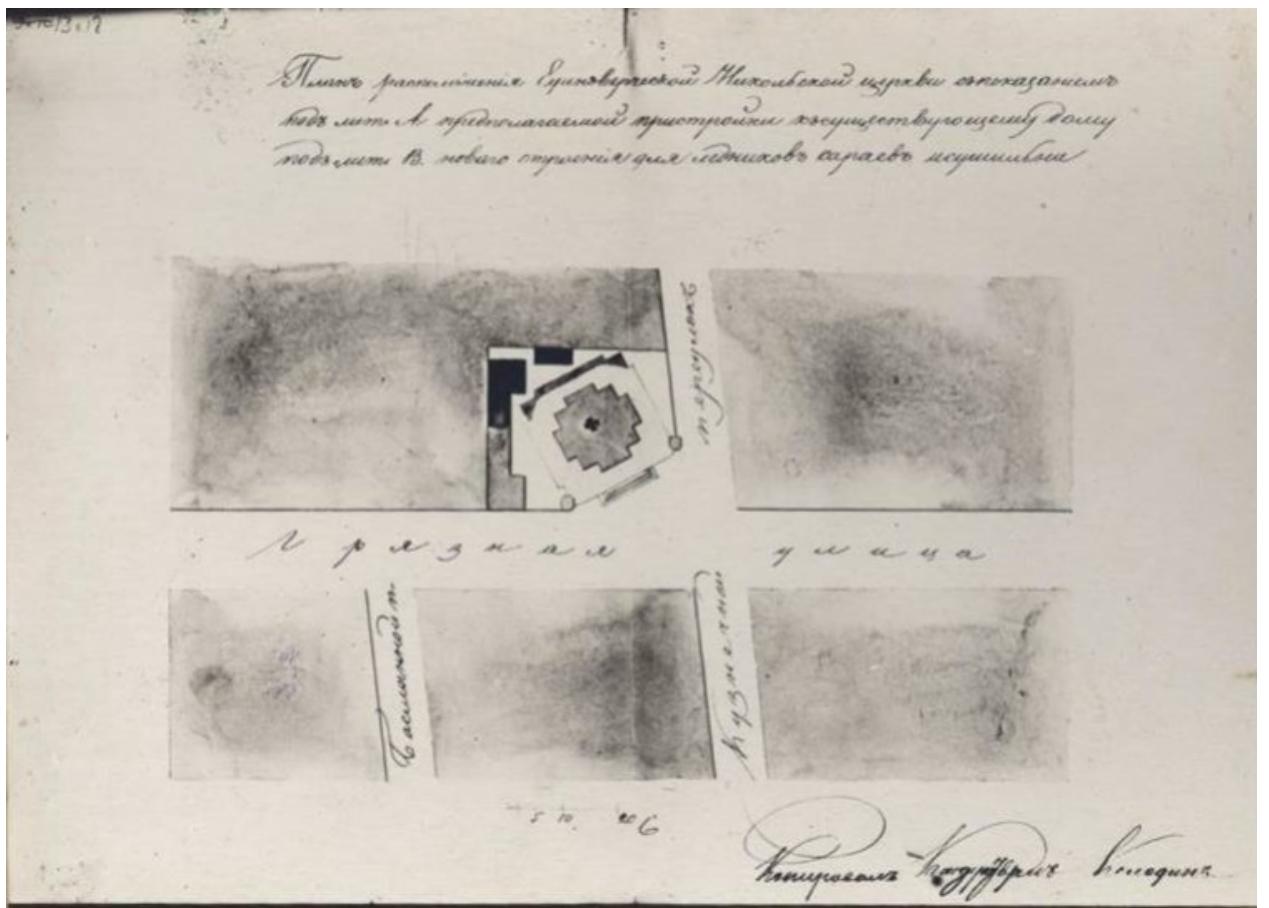 Планъ расположенія Единоверческой Никольской церкви съпоказаніемъ
подъ лит. А предполагаемой пристройки къ существующему дому
подъ лит. В. новаго строенія для ледниковъ сараевъ исушильни
переулокъ
Грязная улица
Басманной п.
Кузнечной
5 10 20
Копировалъ Колодинъ